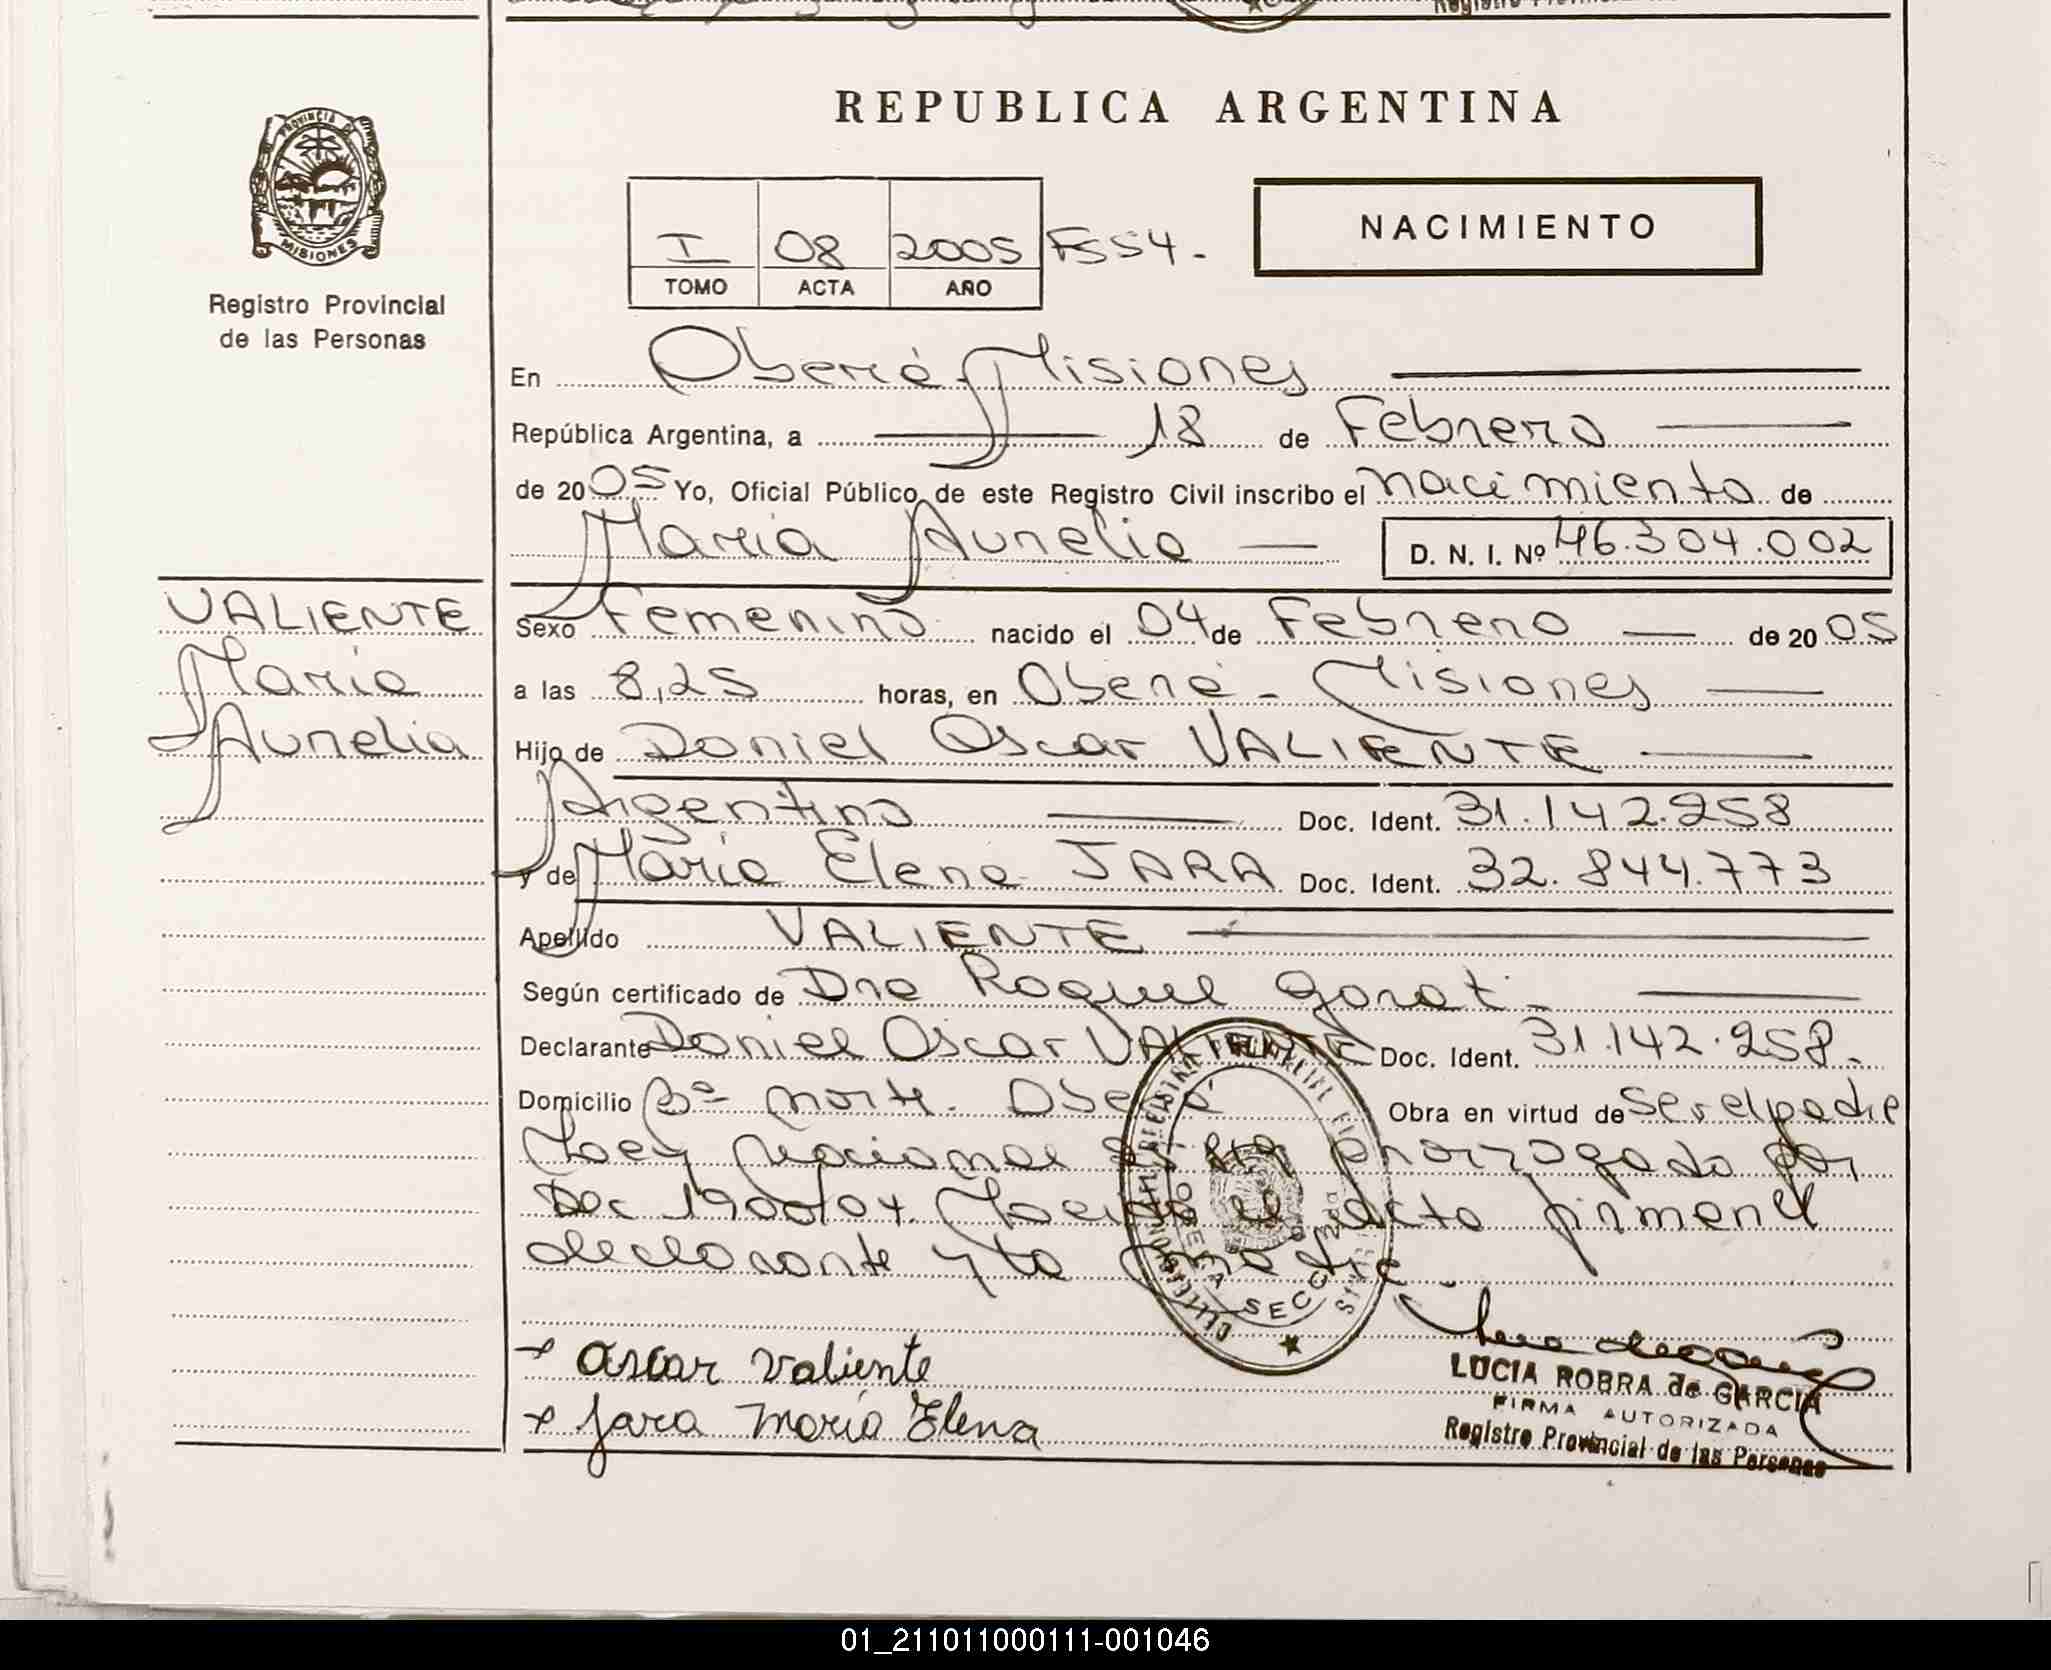 REPUBLICA ARGENTINA
PROVINCIA DE
MISIONES
Registro Provincial
de las Personas
I 08 2005 FS54.
TOMO ACTA AÑO
NACIMIENTO
En Oberá Misiones
República Argentina, a 18 de Febrero
de 2005 Yo, Oficial Público de este Registro Civil inscribo el nacimiento de
Maria Aurelia D. N. I. Nº 46.304.002
VALIENTE
Maria
Aurelia
Sexo Femenino nacido el 04 de Febrero de 2005
a las 8,25 horas, en Oberá - Misiones
Hijo de Daniel Oscar VALIENTE
Argentino Doc. Ident. 31.142.258
y de Maria Elena JARA Doc. Ident. 32.844.773
Apellido VALIENTE
Según certificado de Dra Raquel
Declarante Daniel Oscar VALIENTE Doc. Ident. 31.142.258.
Domicilio Bº norte. Oberá Obra en virtud de ser el padre
Ley Nacional prorrogado por
Dec 1900/04. Leido el acta firman el
declarante y la madre.
Oscar Valiente
Jara Maria Elena
LUCIA ROBRA de GARCIA
FIRMA AUTORIZADA
Registro Provincial de las Personas
01_211011000111-001046